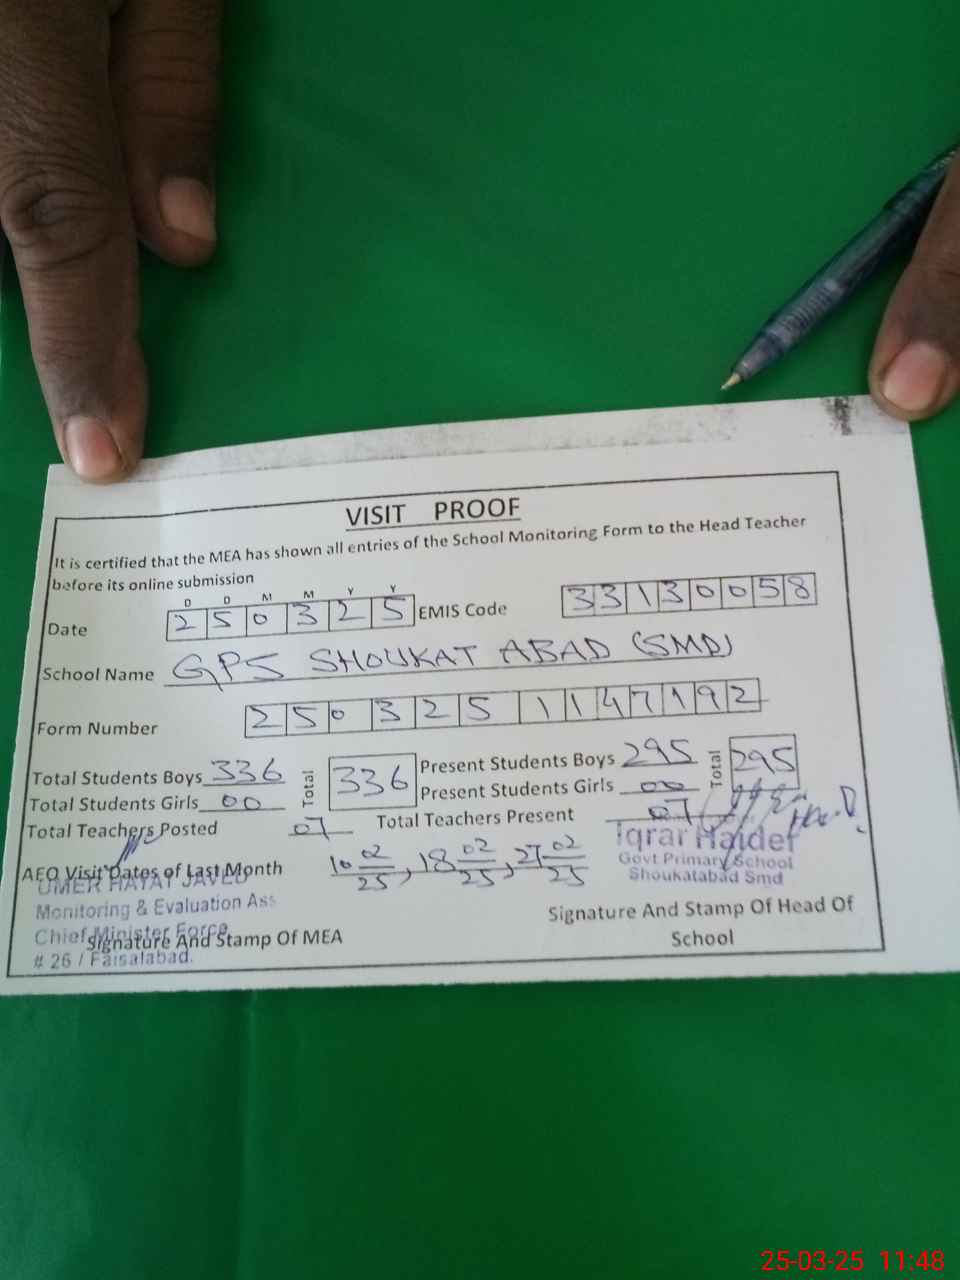 VISIT PROOF
It is certified that the MEA has shown all entries of the School Monitoring Form to the Head Teacher
before its online submission
D D M M Y Y
Date 2 5 0 3 2 5 EMIS Code 3 3 1 3 0 0 5 8
School Name GPS SHOUKAT ABAD (SMD)
Form Number 2 5 0 3 2 5 1 1 4 7 1 9 2
Total Students Boys 336 Total 336 Present Students Boys 295 Total 295
Total Students Girls 00 Present Students Girls 00
Total Teachers Posted 07 Total Teachers Present 07
Iqrar Haider
Govt Primary School
Shoukatabad Smd
AEO Visit Dates of Last Month 10 02/25, 18 02/25, 27 02/25
UMER HAYAT JAVED
Monitoring & Evaluation Ass
Chief Minister Force
# 26 / Faisalabad.
Signature And Stamp Of MEA
Signature And Stamp Of Head Of
School
25-03-25 11:48